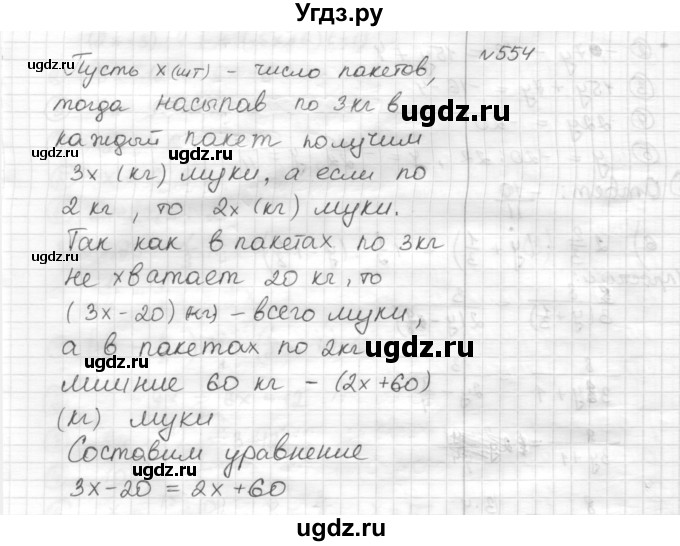 Угдз.ру
№554
Пусть x (шт) - число пакетов,
тогда насыпав по 3кг в
каждый пакет получим
3x (кг) муки, а если по
2 кг, то 2x (кг) муки.
Так как в пакетах по 3кг
не хватает 20 кг, то
(3x-20) кг) - всего муки,
а в пакетах по 2кг
лишние 60 кг - (2x+60)
(кг) муки
Составим уравнение
3x-20 = 2x+60
ugdz.ru
ugdz.ru
ugdz.ru
ugdz.ru
ugdz.ru
ugdz.ru
ugdz.ru
ugdz.ru
ugdz.ru
ugdz.ru
ugdz.ru
ugdz.ru